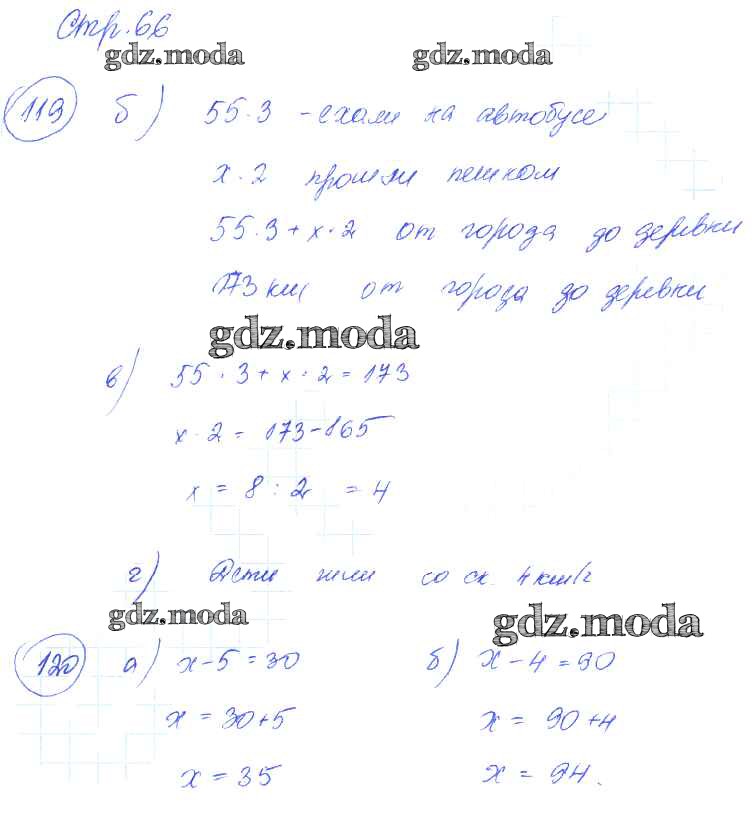 Стр. 66
gdz.moda gdz.moda
119 б) 55·3 - ехали на автобусе
x·2 прошли пешком
55·3 + x·2 от города до деревни
173 км от города до деревни
gdz.moda
в) 55·3 + x·2 = 173
x·2 = 173 - 165
x = 8 : 2 = 4
г) Дети шли со ск. 4 км/г
gdz.moda gdz.moda
120 а) x - 5 = 30 б) x - 4 = 90
x = 30 + 5 x = 90 + 4
x = 35 x = 94.